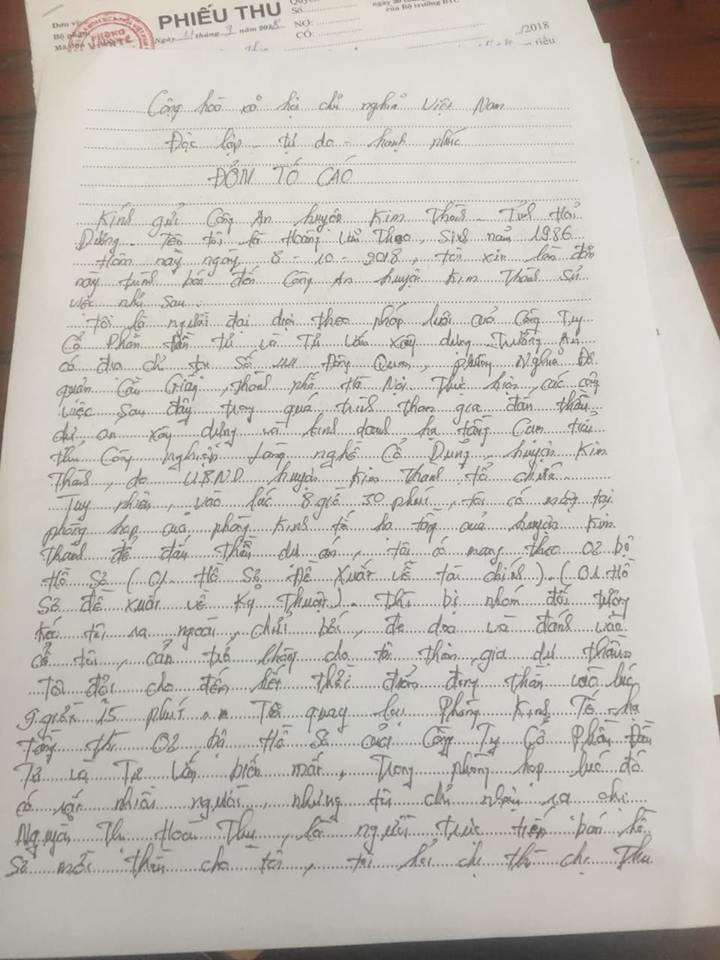 Đơn vị
Bộ phận
PHIẾU THU
Ngày 11 tháng 9 năm 2018
Quyển
Số
NỢ:
CÓ:
của Bộ trưởng BTC
/2018
triệu
PHÒNG
Cộng hòa xã hội chủ nghĩa Việt Nam
Độc lập - tự do - hạnh phúc
ĐƠN TỐ CÁO
Kính gửi Công An huyện Kim Thành - Tỉnh Hải
Dương. Tên tôi là Hoàng Văn Thạo, Sinh năm 1986
Hôm nay ngày 8 - 10 - 2018, tôi xin làm đơn
này trình báo đến Công An huyện Kim Thành Sự
việc như sau:
tôi là người đại diện theo pháp luật của Công Ty
Cổ Phần Đầu tư và Tư vấn xây dựng Trường An
có địa chỉ tại Số Đông Quan, phường Nghĩa Đô
quận Cầu Giấy, thành phố Hà Nội. Thực hiện các công
việc sau đây trong quá trình tham gia đấu thầu
dự án xây dựng và kinh doanh hạ tầng Cụm tiểu
thủ Công nghiệp Làng nghề Cổ Dũng, huyện Kim
Thành, do U.B.N.D huyện Kim Thành tổ chức.
Tuy nhiên, vào lúc 8 giờ 30 phút, tôi có mặt tại
phòng họp của phòng Kinh tế hạ tầng của huyện Kim
Thành để đấu thầu dự án, tôi có mang theo 02 bộ
Hồ Sơ (01 Hồ Sơ Đề Xuất về tài chính). (01 Hồ
Sơ đề xuất về Kỹ Thuật). Thì bị nhóm đối tượng
kéo tôi ra ngoài, chửi bới, đe dọa và đánh vào
cổ tôi, cản trở không cho tôi tham gia dự thầu
Tôi đợi cho đến hết thời điểm đóng thầu vào lúc
9 giờ 15 phút Tôi quay lại Phòng Kinh Tế hạ
tầng thì 02 bộ Hồ Sơ của Công Ty Cổ Phần Đầu
Tư và Tư Vấn biến mất, Trong phòng họp lúc đó
có rất nhiều người, nhưng tôi chỉ nhận ra chị
Nguyễn Thị Hoài Thu, là người trực tiếp bán hồ
Sơ mời thầu cho tôi, tôi hỏi chị thì chị Thu